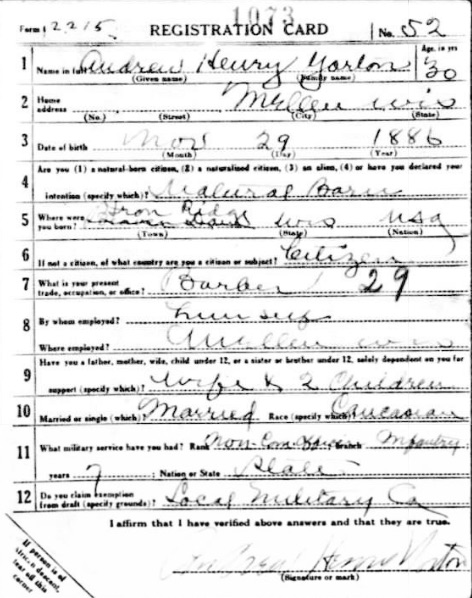 1073
Form 1 2215 REGISTRATION CARD No. 52
1 Name in full Andrew Henry Yorton Age, in yrs 30
(Given name) (Family name)
2 Home address Mellen Wis
(No.) (Street) (City) (State)
3 Date of birth Nov 29 1886
(Month) (Day) (Year)
4 Are you (1) a natural-born citizen, (2) a naturalized citizen, (3) an alien, (4) or have you declared your
intention (specify which)? Natural Born
5 Where were you born? Iron Ridge Wis USA
(Town) (State) (Nation)
6 If not a citizen, of what country are you a citizen or subject? Citizen
7 What is your present trade, occupation, or office? Barber 29
8 By whom employed? himself
Where employed? Mellen Wis
9 Have you a father, mother, wife, child under 12, or a sister or brother under 12, solely dependent on you for
support (specify which)? Wife & 2 Children
10 Married or single (which)? Married Race (specify which)? Caucasian
11 What military service have you had? Rank Non Com branch Infantry
years 7 ; Nation or State State
12 Do you claim exemption from draft (specify grounds)? Local Military Co
I affirm that I have verified above answers and that they are true.
Andrew Henry Yorton
(Signature or mark)
If person is of
descent,
tear off this
corner